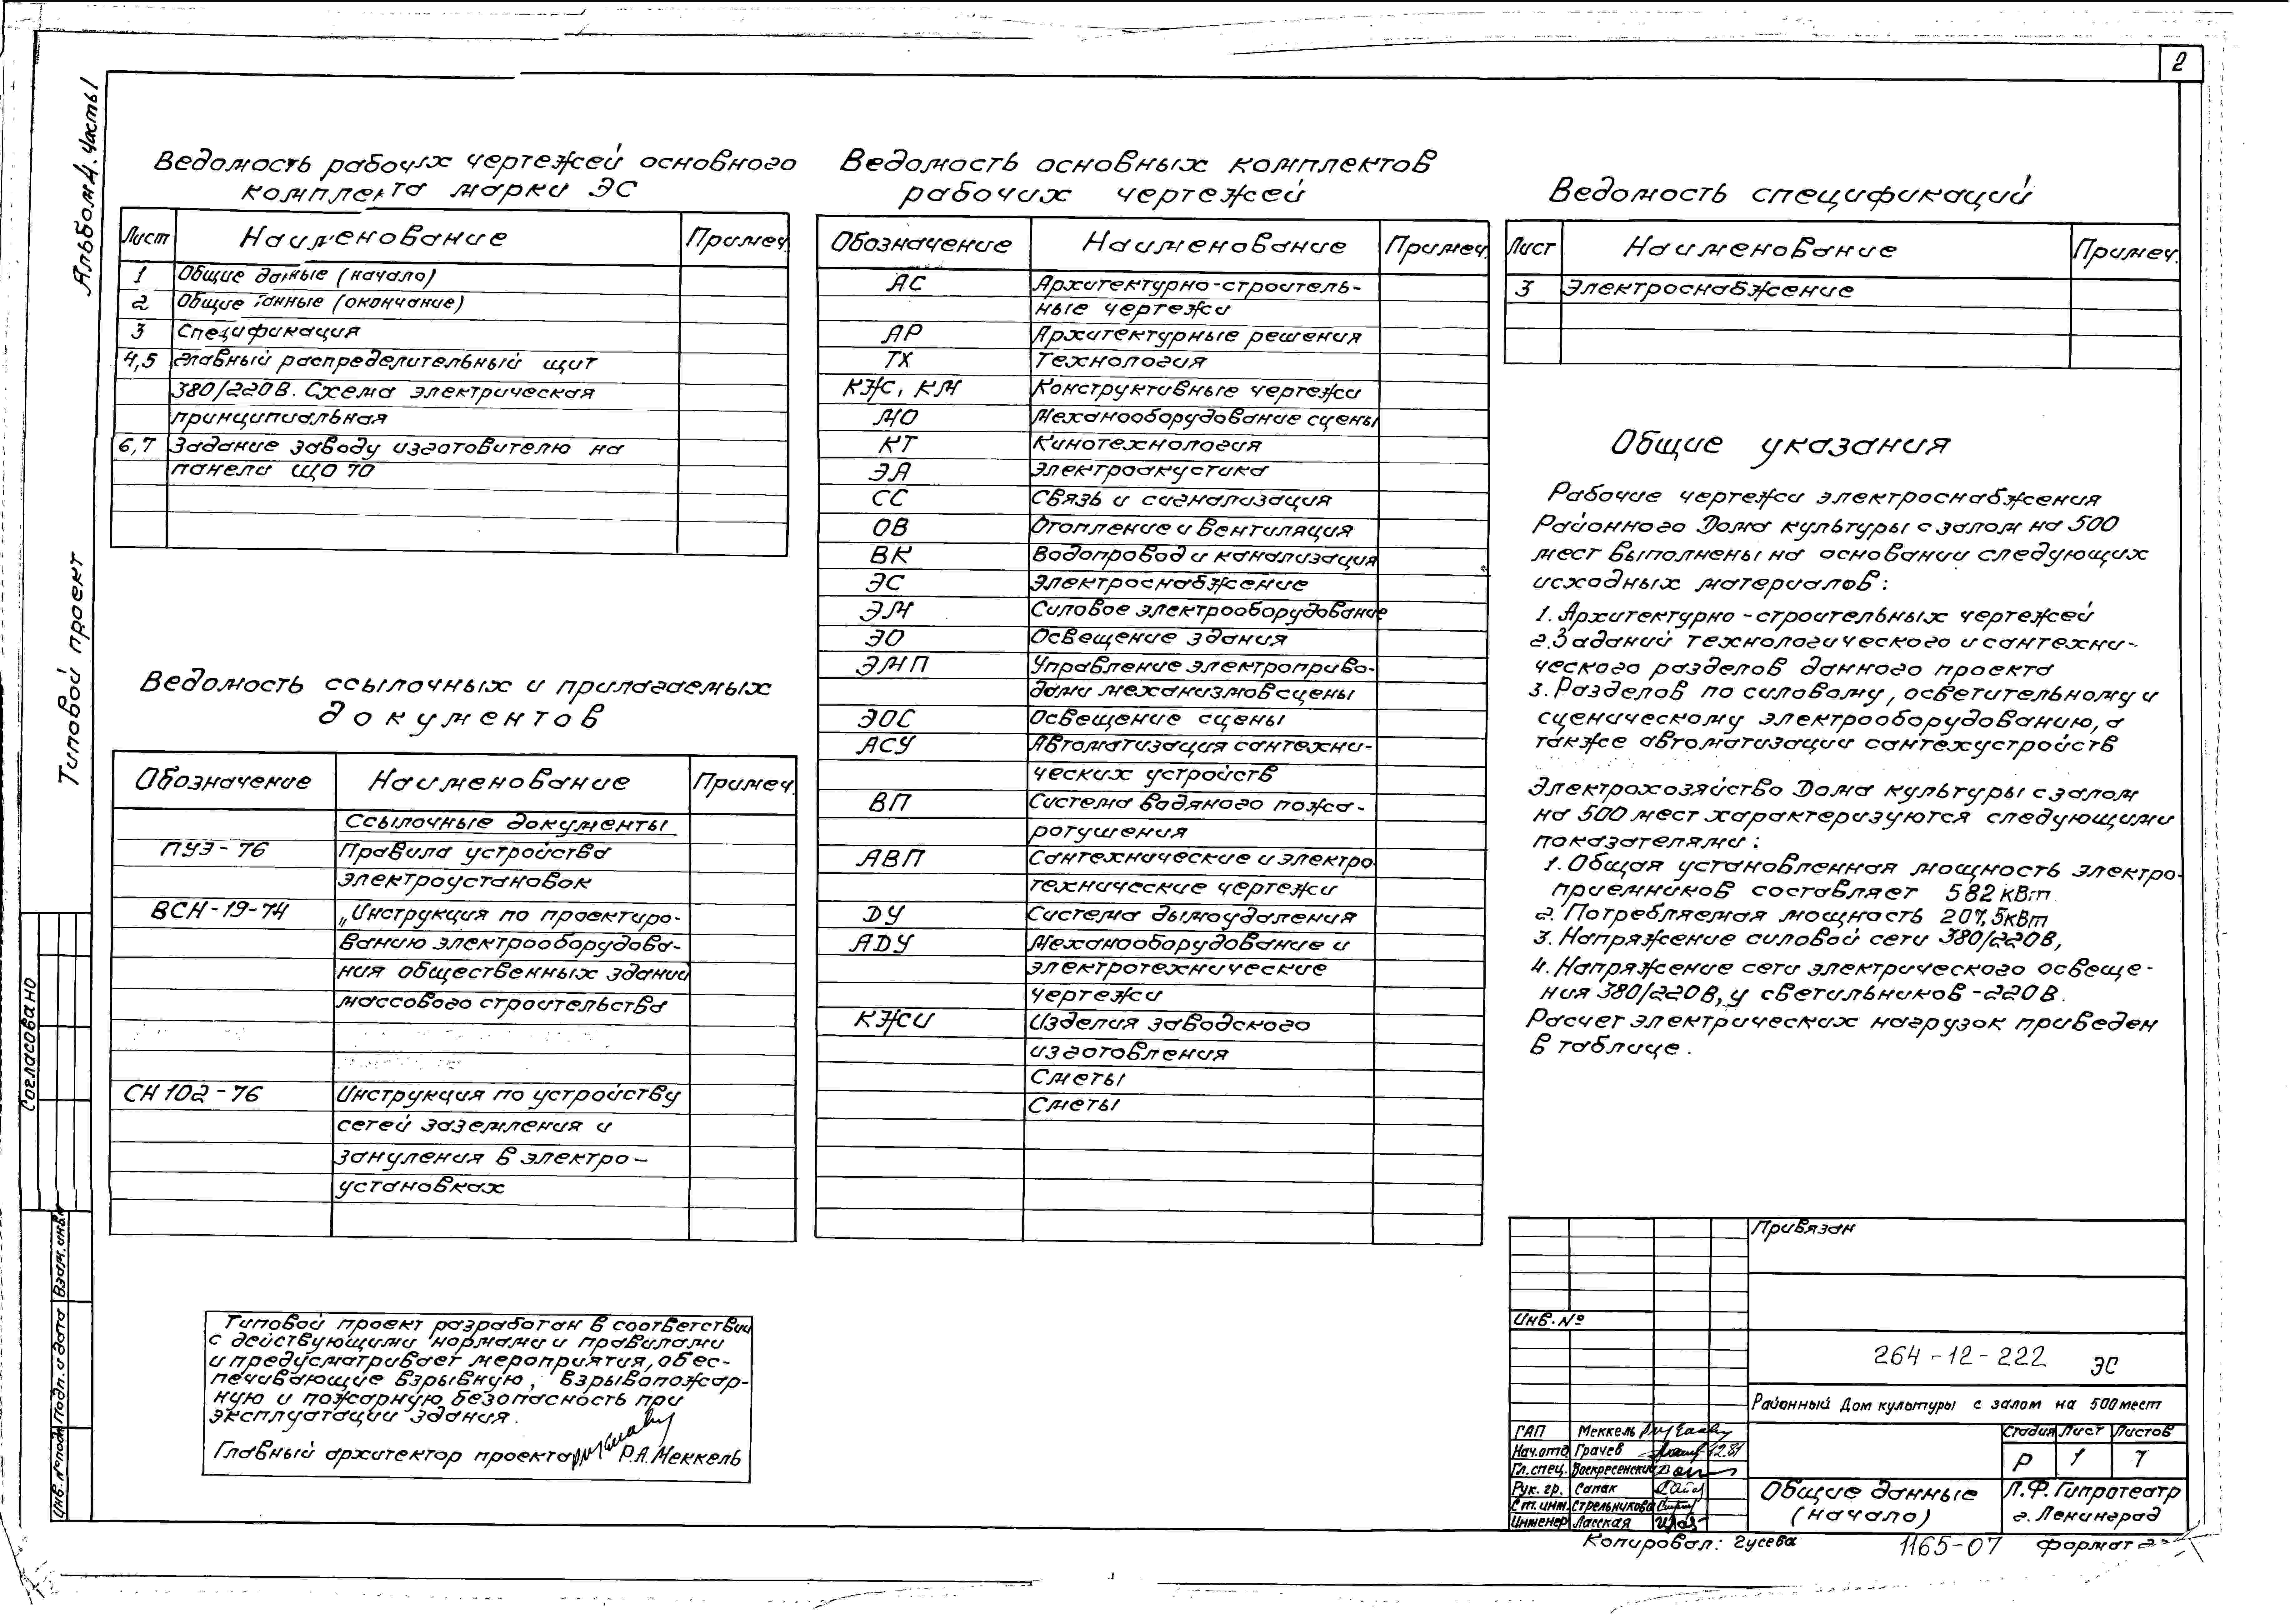 2
Альбом 4. Часть 1
Типовой проект
Согласовано
Взам. инв.
Подп. и дата
Инв. № подл
Ведомость рабочих чертежей основного
комплекта марки ЭС
Лист Наименование Примеч.
1 Общие данные (начало)
2 Общие данные (окончание)
3 Спецификация
4,5 Главный распределительный щит
380/220В. Схема электрическая
принципиальная
6,7 Задание заводу изготовителю на
панели ЩО 70
Ведомость ссылочных и прилагаемых
документов
Обозначение Наименование Примеч.
Ссылочные документы
ПУЭ-76 Правила устройства
электроустановок
ВСН-19-74 „Инструкция по проектиро-
ванию электрооборудова-
ния общественных зданий
массового строительства
СН 102-76 Инструкция по устройству
сетей заземления и
зануления в электро-
установках
Типовой проект разработан в соответствии
с действующими нормами и правилами
и предусматривает мероприятия, обес-
печивающие взрывную, взрывопожар-
ную и пожарную безопасность при
эксплуатации здания.
Главный архитектор проекта Р.А. Меккель
Ведомость основных комплектов
рабочих чертежей
Обозначение Наименование Примеч.
АС Архитектурно-строитель-
ные чертежи
АР Архитектурные решения
ТХ Технология
КЖ, КМ Конструктивные чертежи
МО Механооборудование сцены
КТ Кинотехнология
ЭА Электроакустика
СС Связь и сигнализация
ОВ Отопление и вентиляция
ВК Водопровод и канализация
ЭС Электроснабжение
ЭМ Силовое электрооборудование
ЭО Освещение здания
ЭМП Управление электроприво-
дами механизмов сцены
ЭОС Освещение сцены
АСУ Автоматизация сантехни-
ческих устройств
ВП Система водяного пожа-
ротушения
АВП Сантехнические и электро
технические чертежи
ДУ Система дымоудаления
АДУ Механооборудование и
электротехнические
чертежи
КЖИ Изделия заводского
изготовления
Сметы
Сметы
Ведомость спецификаций
Лист Наименование Примеч.
3 Электроснабжение
Общие указания
Рабочие чертежи электроснабжения
Районного Дома культуры с залом на 500
мест выполнены на основании следующих
исходных материалов:
1. Архитектурно-строительных чертежей
2. Заданий технологического и сантехни-
ческого разделов данного проекта
3. Разделов по силовому, осветительному и
сценическому электрооборудованию, а
также автоматизации сантехустройств
Электрохозяйство Дома культуры с залом
на 500 мест характеризуются следующими
показателями:
1. Общая установленная мощность электро-
приемников составляет 582 кВт.
2. Потребляемая мощность 207,5 кВт
3. Напряжение силовой сети 380/220В,
4. Напряжение сети электрического освеще-
ния 380/220В, у светильников -220В.
Расчет электрических нагрузок приведен
в таблице.
Привязан
Инв. №
264-12-222 ЭС
Районный Дом культуры с залом на 500 мест
ГАП Меккель
Нач.отд Грачев 12.81
Гл.спец. Воскресенский
Рук. гр. Сапак
Ст. инж. Стрельникова
Инженер Ласская
Стадия Лист Листов
Р 1 7
Общие данные
(начало)
Л.Ф. Гипротеатр
г. Ленинград
Копировал: Гусева 1165-07 формат